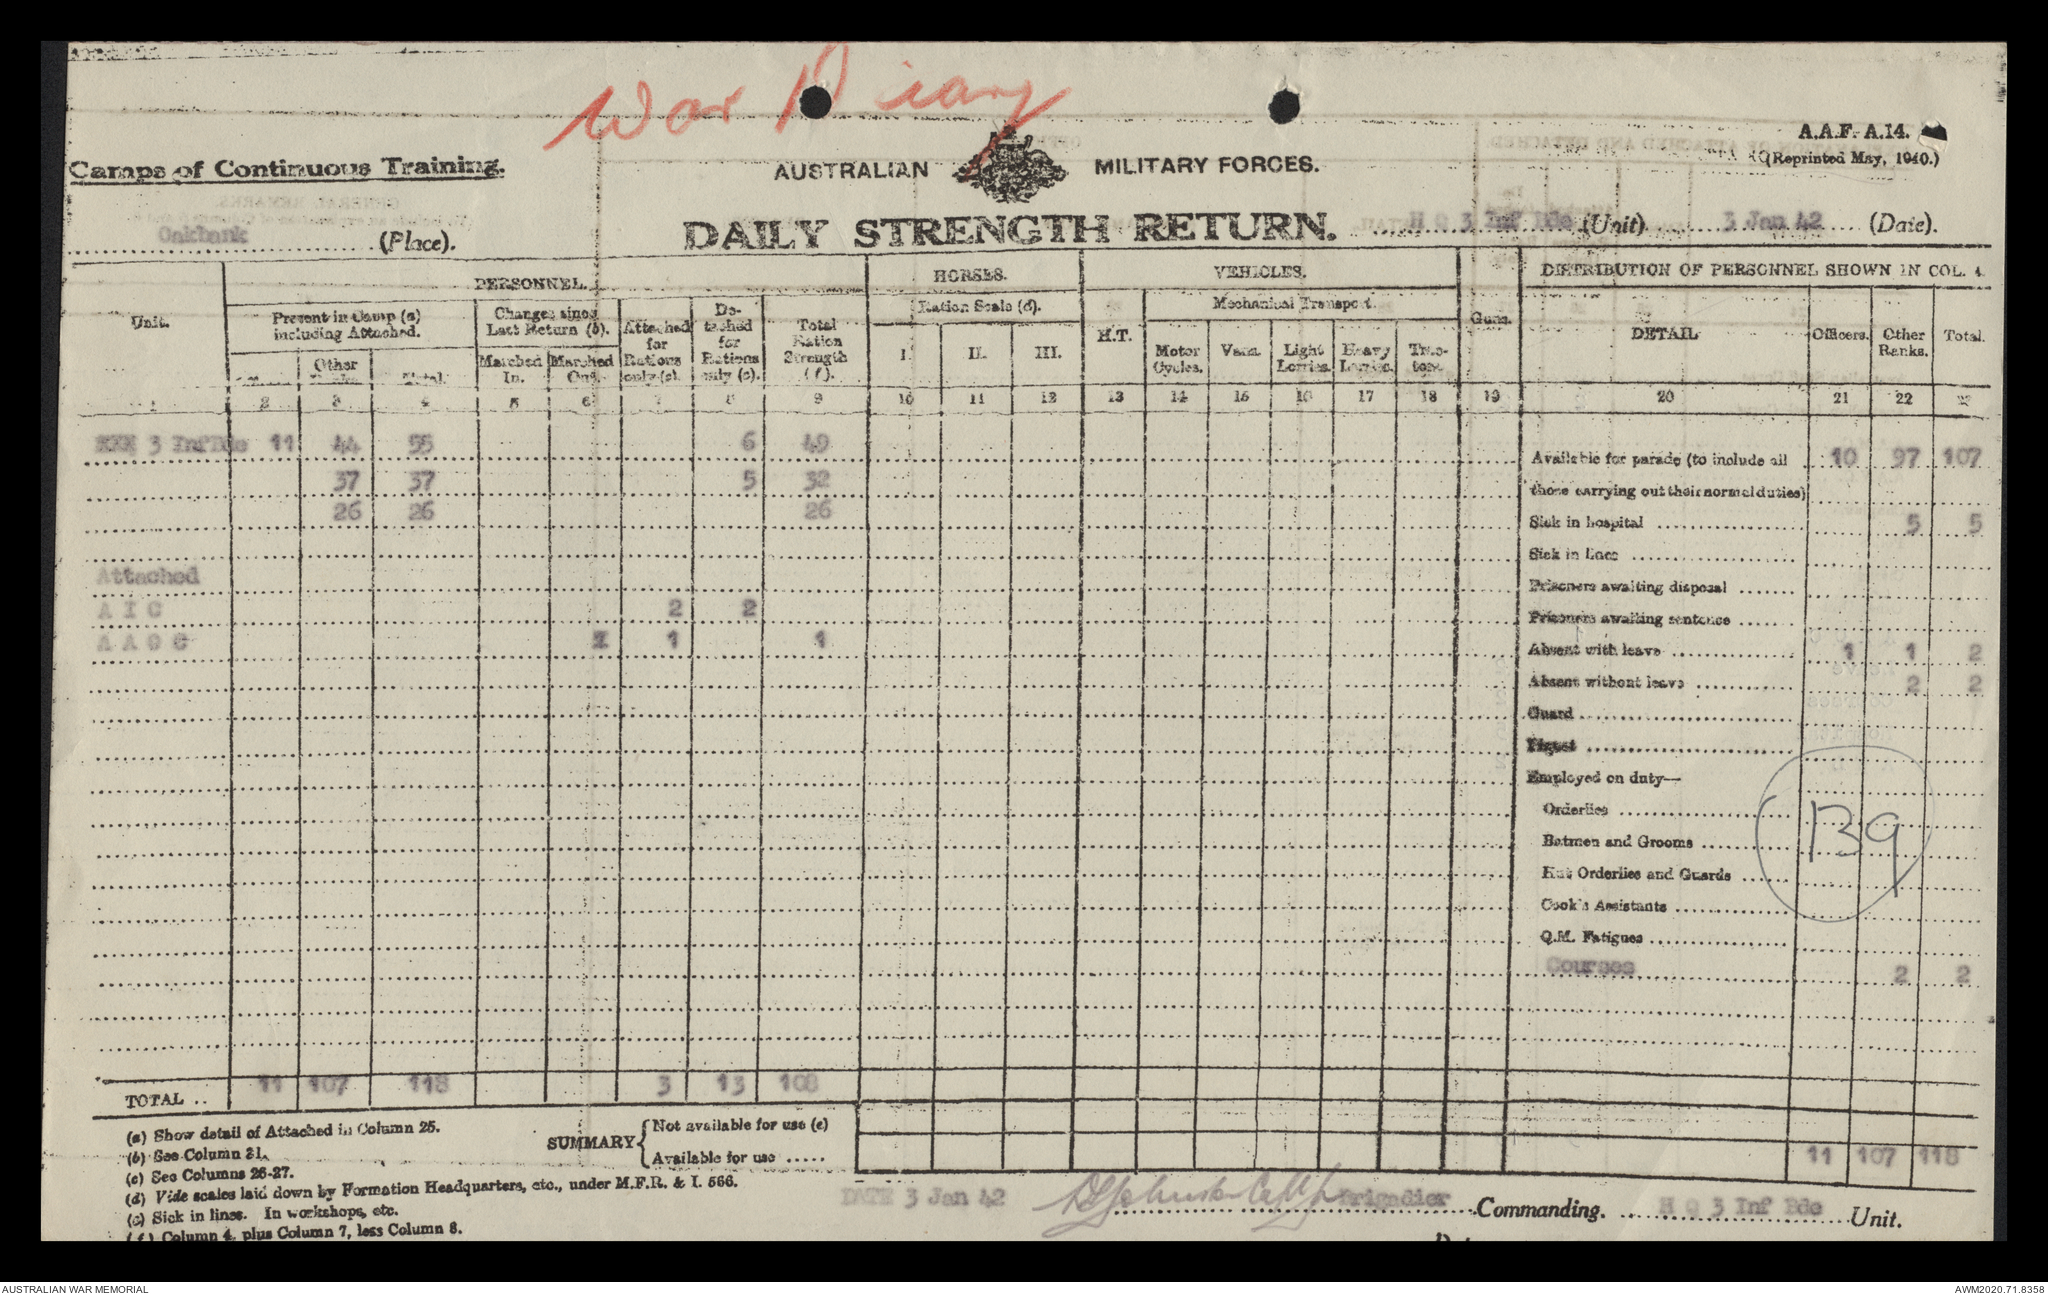 War Diary
A.A.F. A.14.
(Reprinted May, 1940.)
Camps of Continuous Training.
AUSTRALIAN MILITARY FORCES.
Oakbank (Place).
DAILY STRENGTH RETURN.
H Q 3 Inf Bde (Unit) 3 Jan 42 (Date).
PERSONNEL. HORSES. VEHICLES. DISTRIBUTION OF PERSONNEL SHOWN IN COL. 4.
Unit. Present in Camp (a) including Attached. Changes since Last Return (b). Attached for Rations only (c). Detached for Rations only (c). Total Ration Strength (f). Ration Scale (d). H.T. Mechanical Transport. Guns. DETAIL Officers. Other Ranks. Total.
Other Total. Marched In. Marched Out. I. II. III. Motor Cycles. Vans. Light Lorries. Heavy Lorries. Tractors.
1 2 3 4 5 6 7 8 9 10 11 12 13 14 15 16 17 18 19 20 21 22 23
3 InfBde 11 44 55 6 49
37 37 5 32
26 26 26
Attached
A I C 2 2
A A S C 1 1
Available for parade (to include all 10 97 107
those carrying out their normal duties)
Sick in hospital 5 5
Sick in lines
Prisoners awaiting disposal
Prisoners awaiting sentence
Absent with leave 1 1 2
Absent without leave 2 2
Guard
Piquet
Employed on duty—
Orderlies
139
Batmen and Grooms
Hut Orderlies and Guards
Cook's Assistants
Q.M. Fatigues
Courses 2 2
TOTAL .. 11 107 118 3 13 108
11 107 118
(a) Show detail of Attached in Column 25.
(b) See Column 31.
(c) See Columns 26-27.
(d) Vide scales laid down by Formation Headquarters, etc., under M.F.R. & I. 566.
(e) Sick in lines. In workshops, etc.
(f) Column 4, plus Column 7, less Column 8.
SUMMARY { Not available for use (e)
Available for use .....
DATE 3 Jan 42 Brigadier Commanding. H Q 3 Inf Bde Unit.
AUSTRALIAN WAR MEMORIAL
AWM2020.71.8358